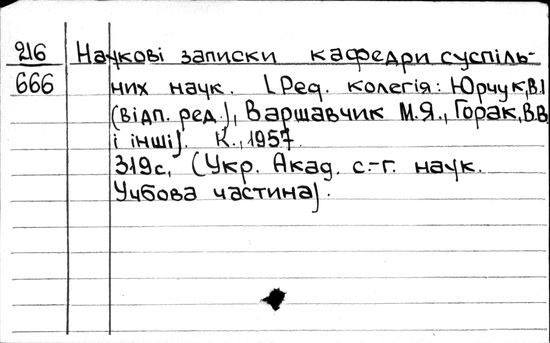 216 Наукові записки кафедри суспіль-
666 них наук. [Ред. колегія: Юрчук, В.І
(відп. ред.), Варшавчик М.Я., Горак, В.В.
і інші]. К., 1957.
319с, (Укр. Акад. с.-г. наук.
Учбова частина).